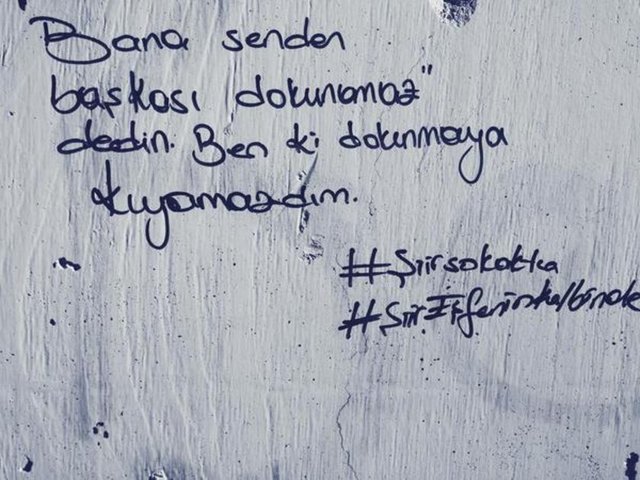 Bana senden
başkası dokunamaz"
dedin. Ben ki dokunmaya
kıyamazdım.
#Şiirsokakta